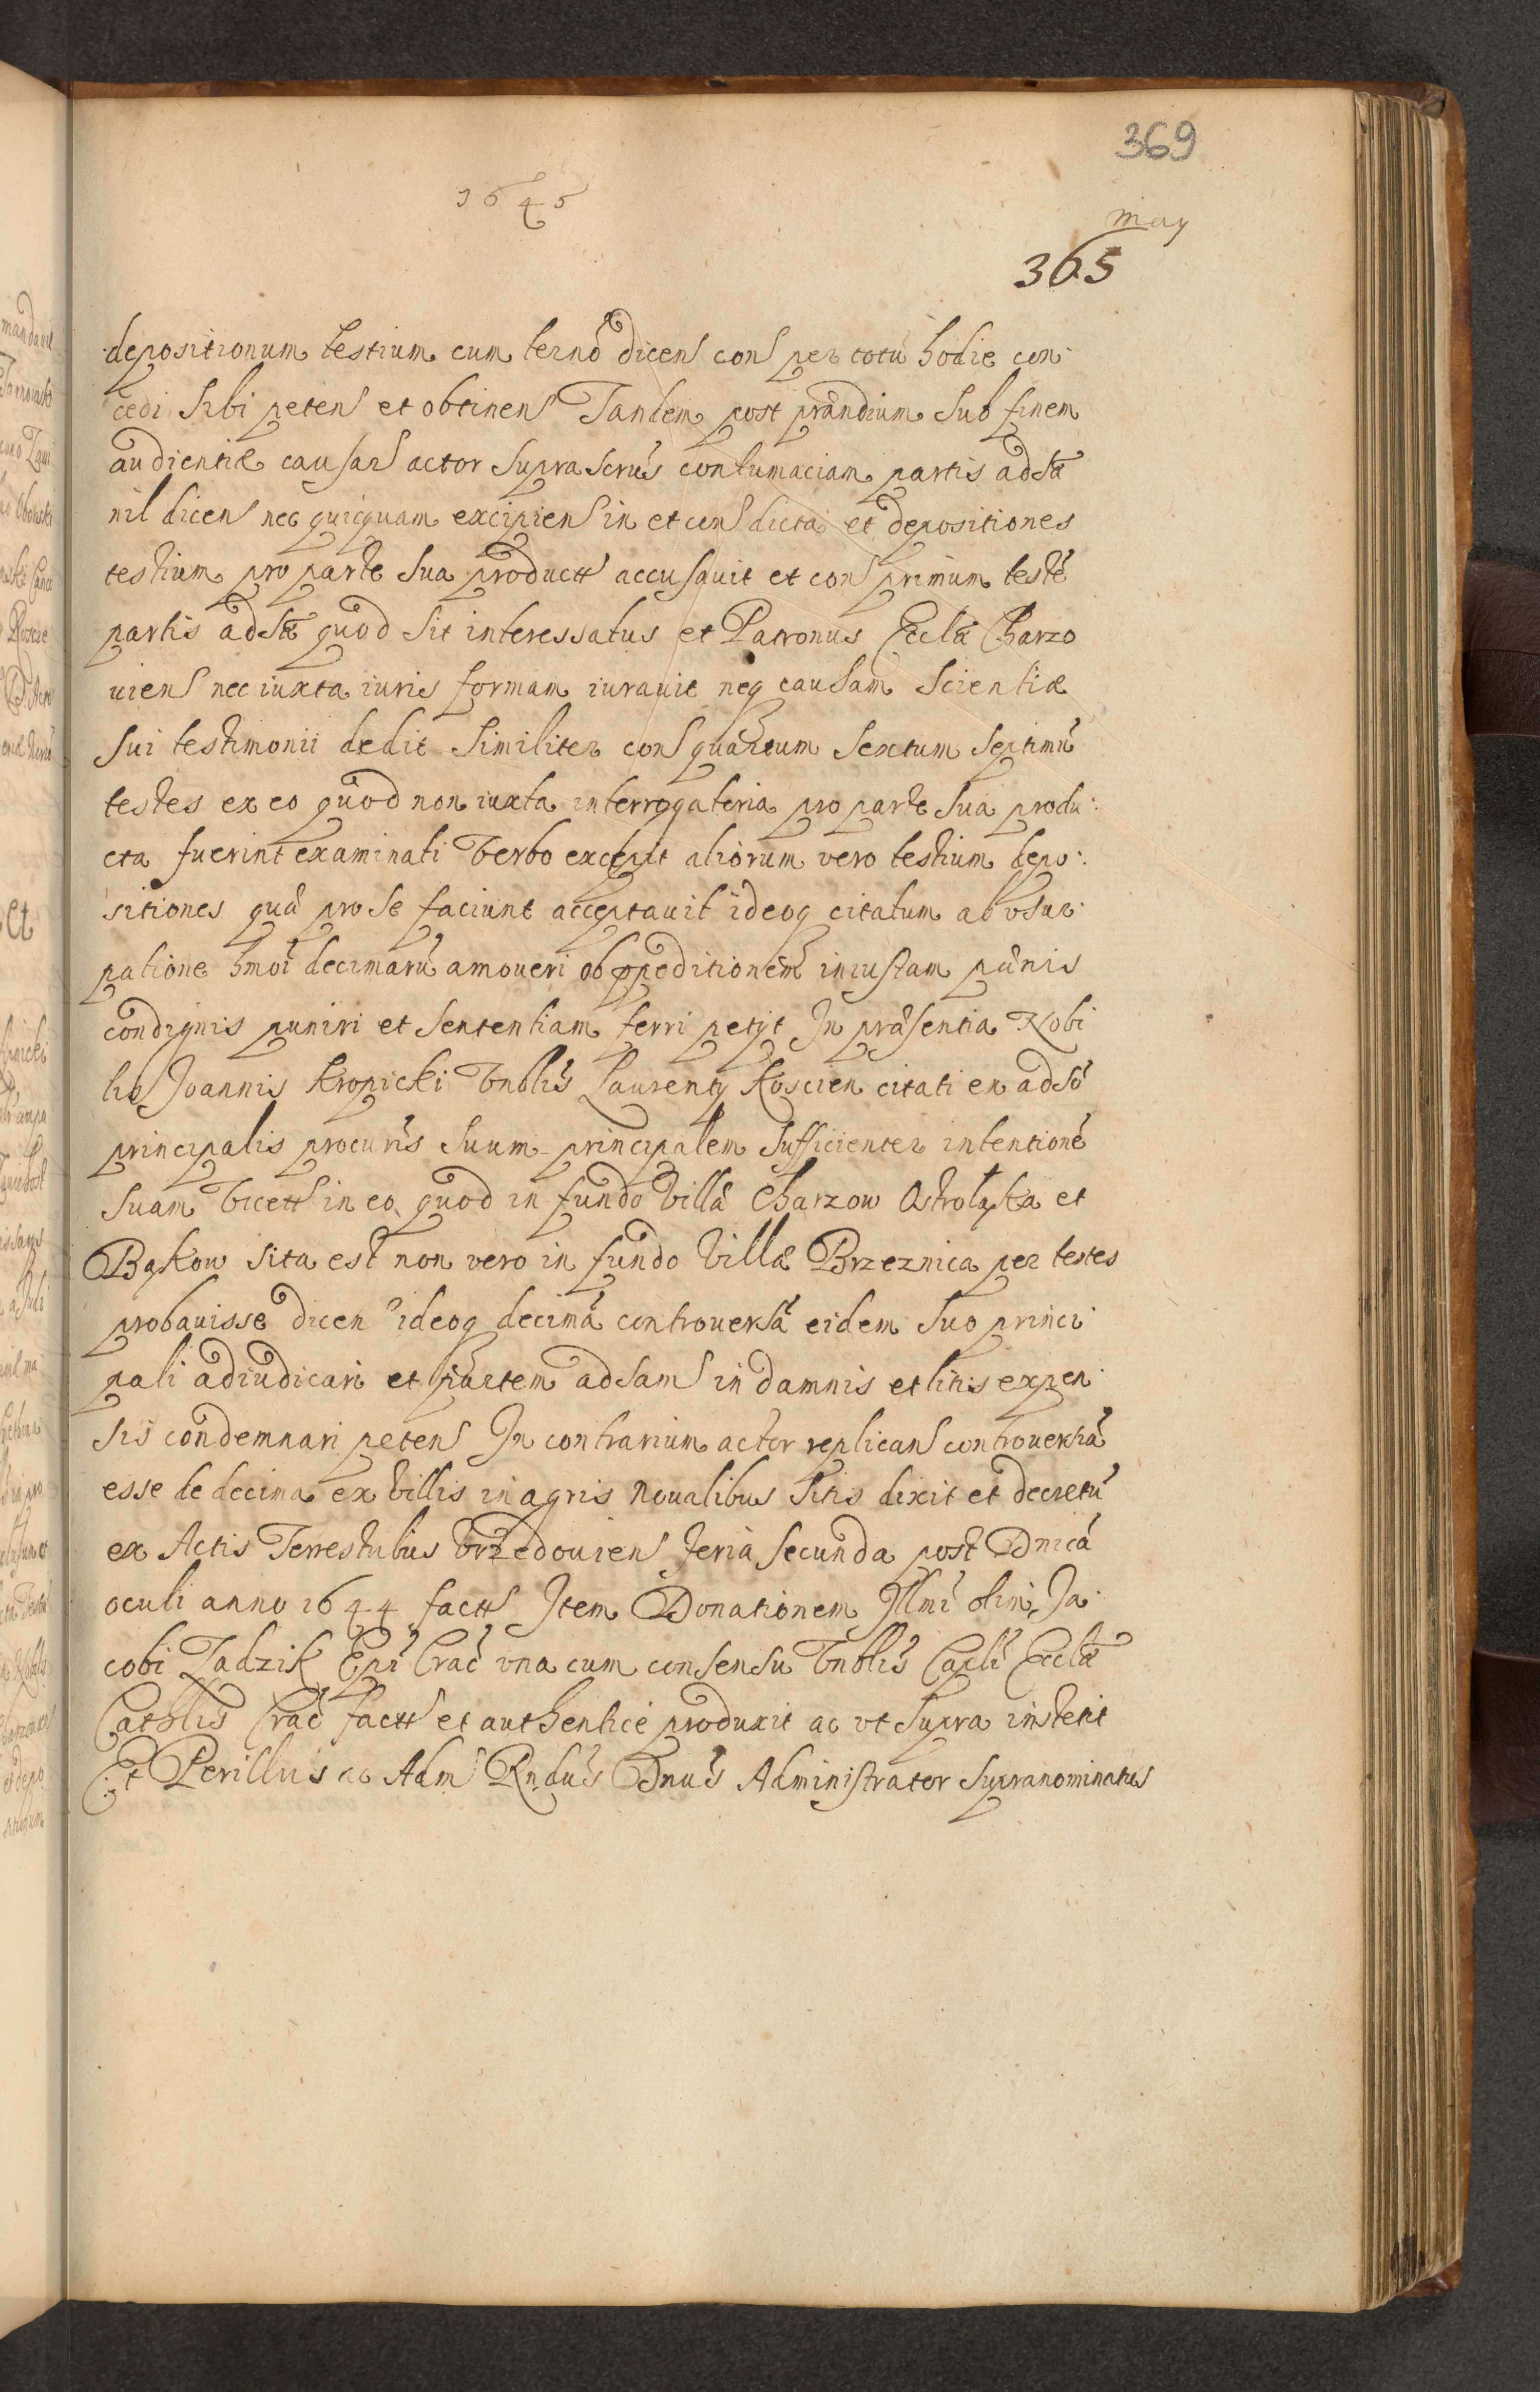 369
1645
May
365
depositionum testium cum termō dicen con per totū hodie con:
cedi sibi peten et obtinen Tandem post prandium sub finem
audientiæ causar actor suprascrūs contumaciam partis adsæ
nil dicen nec quicquam excipien in et con dicta et depositiones
testium pro parte sua product accusavit et con primum testē
partis adsæ quod sit interessatus et Patronus Ecclæ Charzo
uien nec iuxta iuris formam iurauit neq causam scientiæ
sui testimonii dedit similiter con quartum sextum septimū
testes ex eo quod non iuxta interrogatoria pro parte sua produ:
cta fuerint examinati verbo excepit aliorum vero testium depo:
sitiones quæ pro se faciunt acceptauit ideoq citatum ab vsur:
patione hmoi decimarū amoueri ob iniustam pænis
condignis puniri et sententiam ferri petyt In præsentia Nobi
lis Joannis Kropicki Vnblis Laurenty Koscien citati ex adsō
principalis procuris suum principalem sufficienter intentionē
suam in eo quod in fundo villæ Charzow Ostrołąka et
Bąkow sita est non vero in fundo villæ Brzeznica per testes
probauisse dicen ideoq decimā controuersā eidem suo princi:
pali adiudicari et partem adsam in damnis et litis expen:
sis condemnari peten In contrarium actor replican controuersiā
esse de decima ex villis in agris noualibus sitis dixit et decretū
ex Actis Terrestribus vrzedouien feria secunda post Dnicā
oculi anno 1644 fact Item Donationem Illmi olim Ja:
cobi Zadzik Epi Crac vna cum consensu Vnblis Capli Ecclæ
Cathlis Crac fact et authentice produxit ac vt supra institit
Et Perillus ac Adm Rndus Dnus Administrator supranominatus